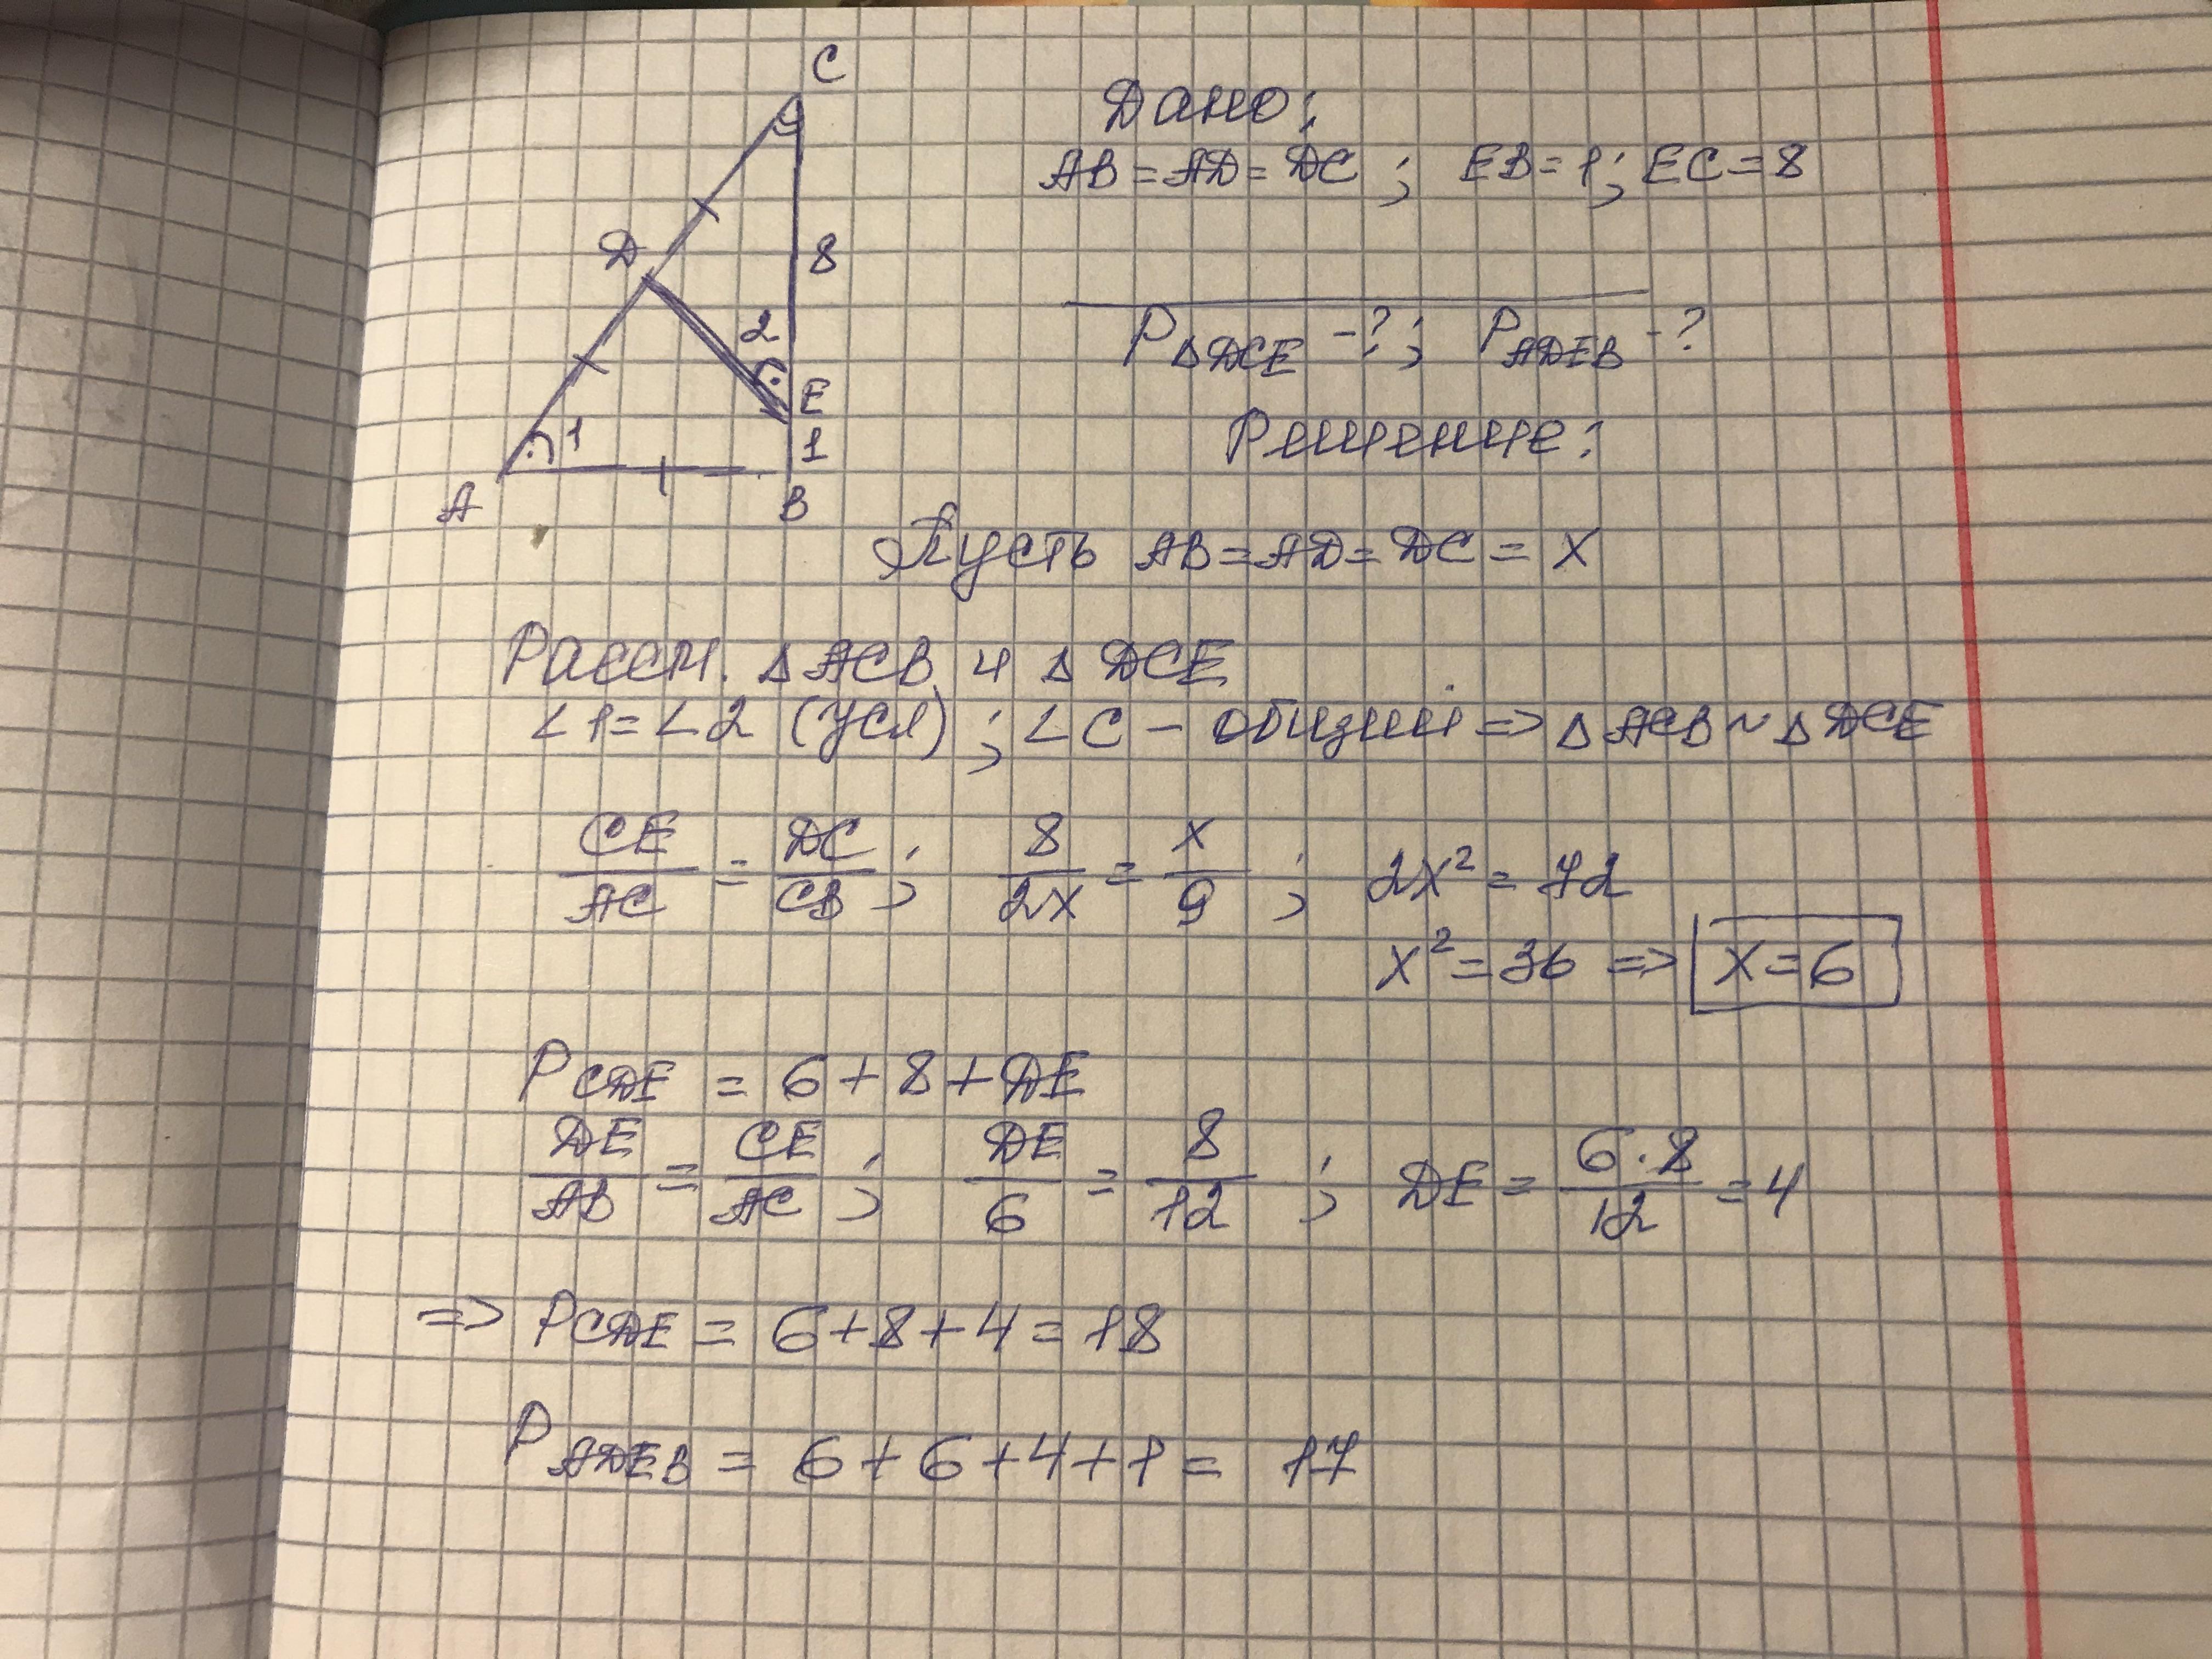 C
Дано:
AB = AD = DC ; EB = 1 ; EC = 8
D
8
2
E
1
1
A
B
P△DCE - ? ; PADEB - ?
Решение:
Пусть AB = AD = DC = x
Рассм. △ACB и △DCE
∠1 = ∠2 (усл) ; ∠C - общий => △ACB ~ △DCE
CE/AC = DC/CB ; 8/2x = x/9 ; 2x² = 72
x² = 36 => x = 6
PCDE = 6 + 8 + DE
DE/AB = CE/AC ; DE/6 = 8/12 ; DE = 6·8/12 = 4
=> PCDE = 6 + 8 + 4 = 18
PADEB = 6 + 6 + 4 + 1 = 17